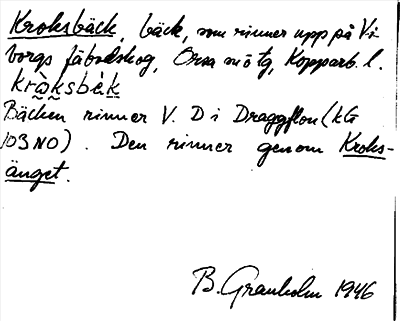 Kroksbäck, bäck, som rinner upp på Vi-
borgs fäbodskog, Orsa sn o tg, Kopparb. l.
krɷ̀ksbɛ̀k
Bäcken rinner V. D i Draggflon (kG
103 NO). Den rinner genom Kroks-
änget.
B. Granholm 1946